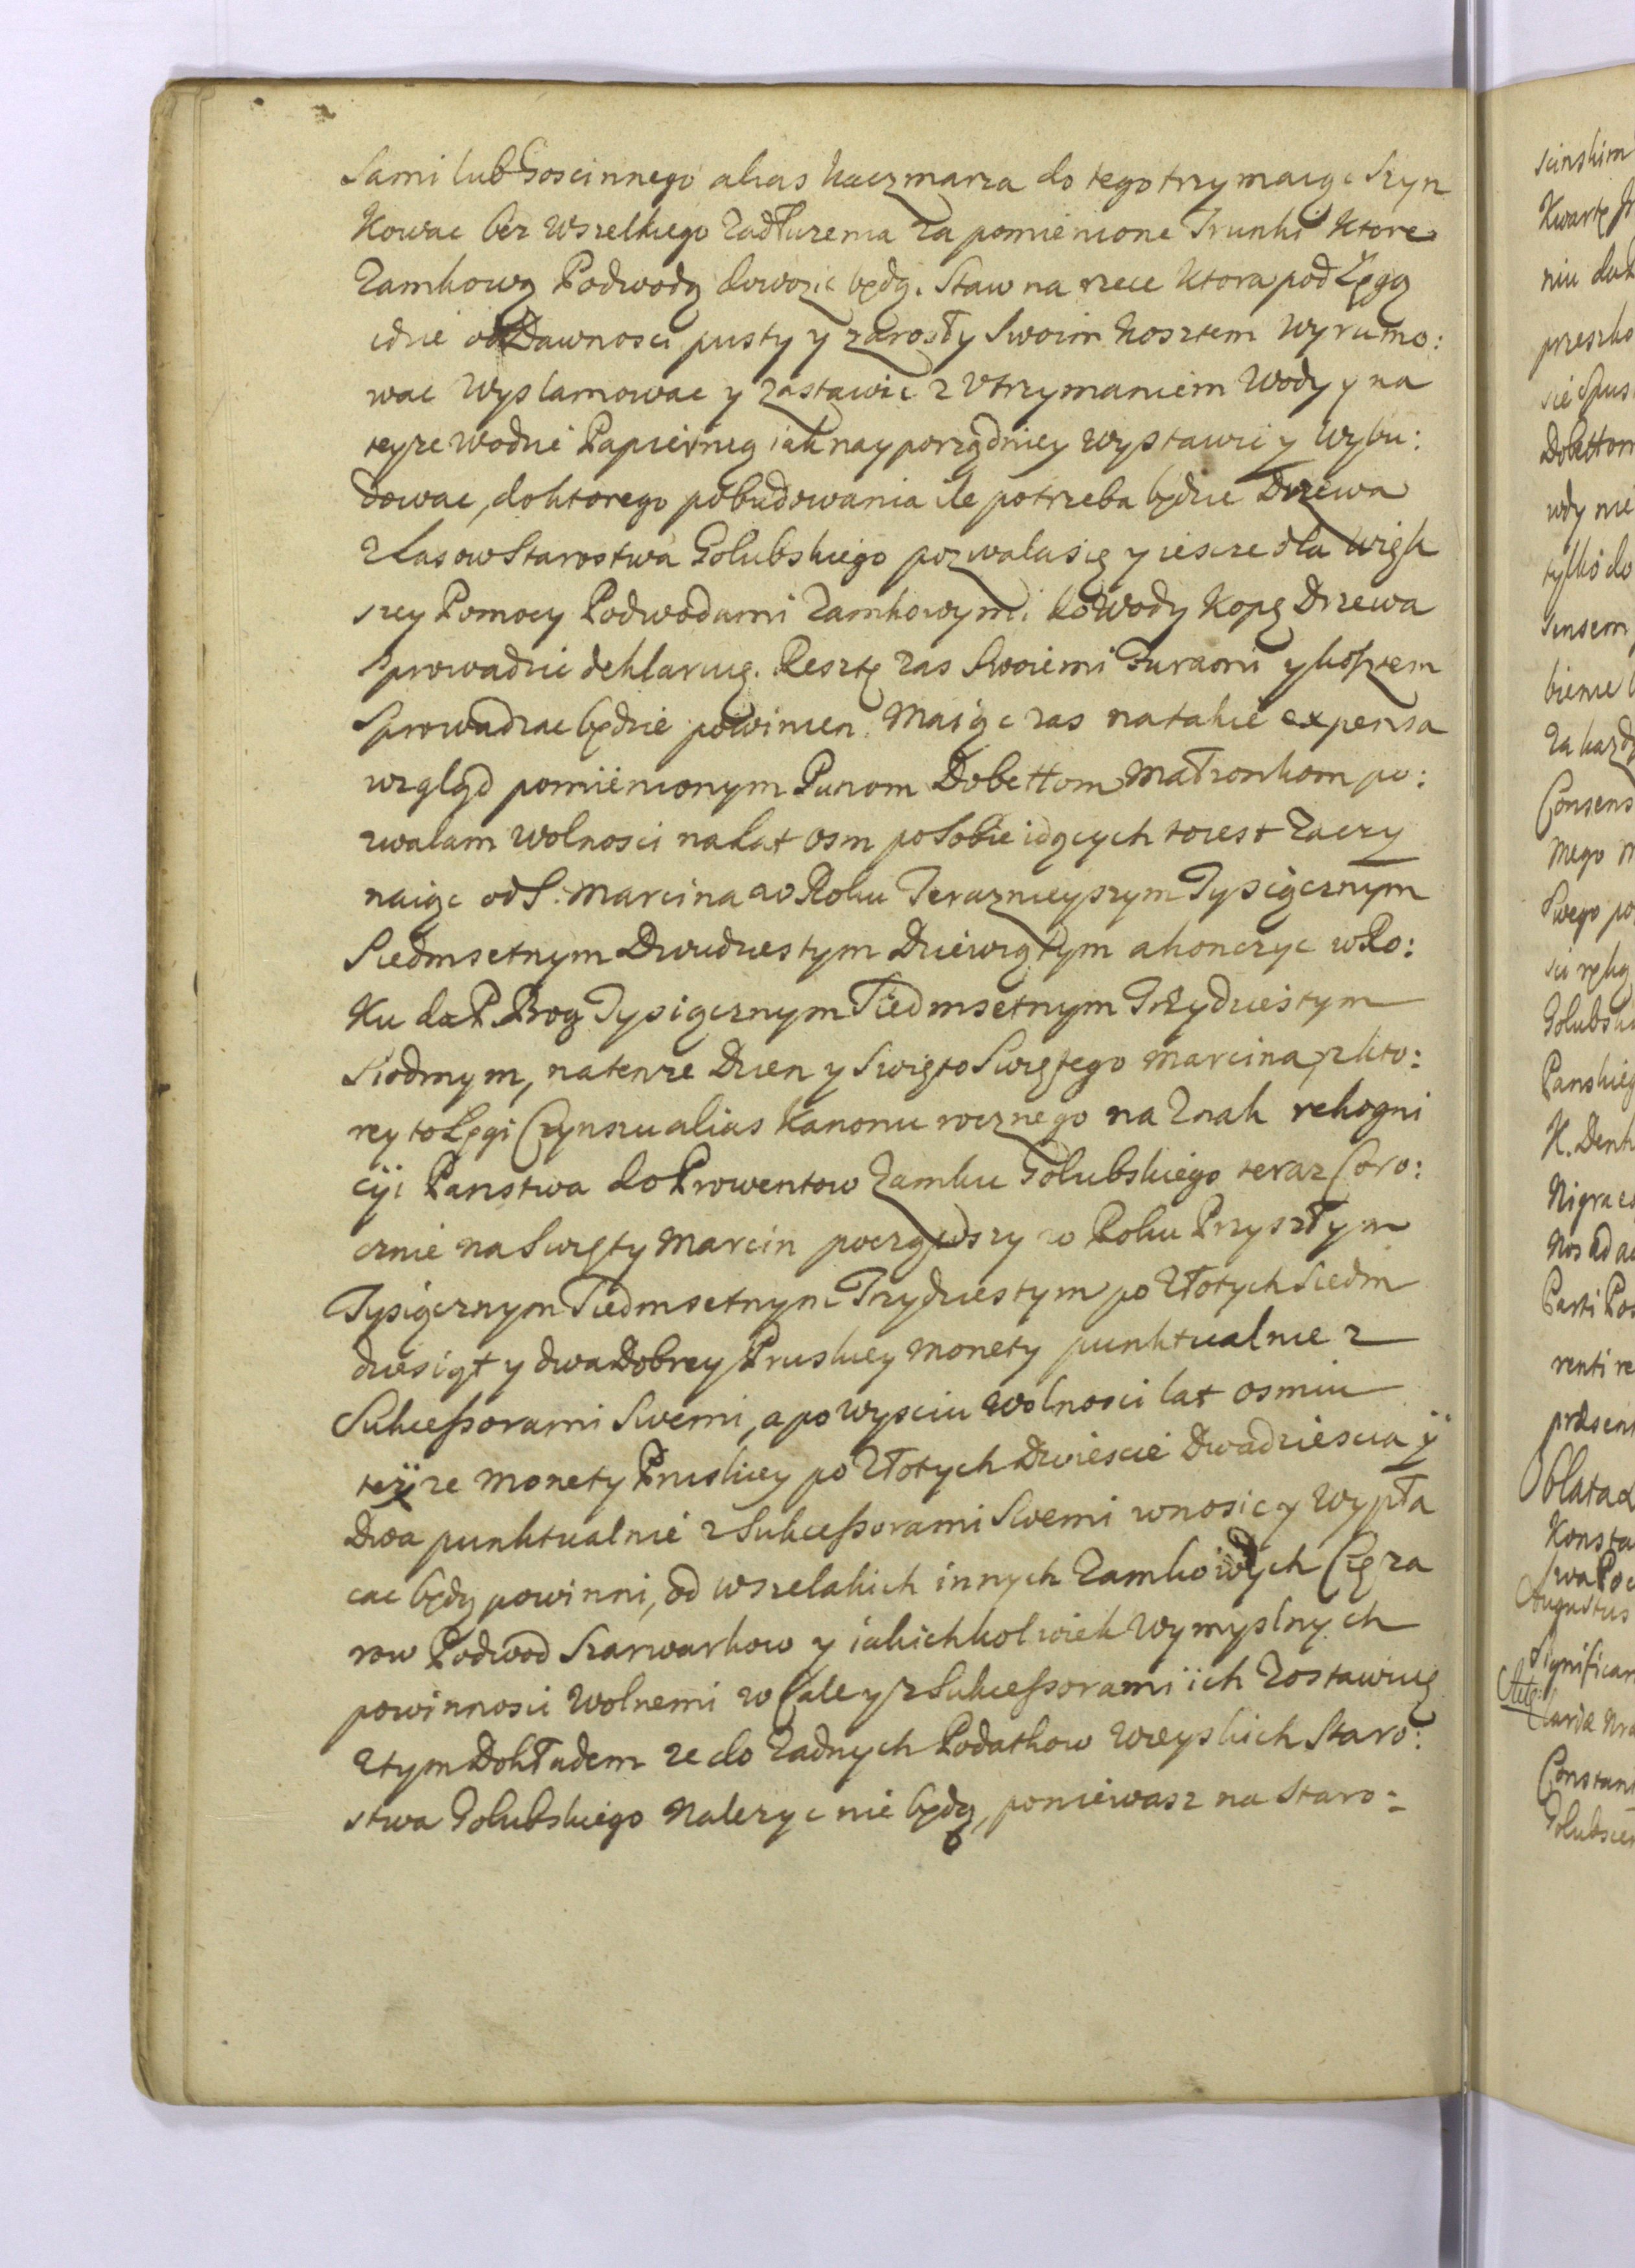 Sami lub Goscinnego alias kaczmarza do tego trzymaiąc Szyn
kowac bez wszelkiego Zadłuzenia Za pomienione Trunki ktore
Zamkową Podwodą dowozic będą. Staw na rzece ktora pod Łęgą
idzie od Dawnosci pusty y zarosły Swoim kosztem wyrumo:
wac wyslamowac y zastawic z Utrzymaniem wody y na
teyze wodzie Papiernią iak nayporządniey wystawic y wybu:
dowac, do ktorego pobudowania ile potrzeba będzie Drzewa
z Lasow Starostwa Golubskiego pozwala się y iescze dla więk
szey Pomocy Podwodami Zamkowymi ko wody kopę Drzewa
sprowadzic deklaruię. Resztę zas Swoiemi Furami y kosztem
Sprowadzac będzie powinien. Maiąc zas na takie expensa
wzgląd pomienionym Panom Dobettom Małzonkom po:
zwalam wolnosci na Lat osm po Sobie idących to iest Zaczy
naiąc od S. Marcina w Roku Teraznieyszym Tysiącznym
Siedmsetnym Dwudziestym Dziewiątym a konczyc w Ro:
ku da P. Bog Tysiącznym Siedmsetnym Trzydziestym
Siodmym, na tenze Dzien y Swięto Swiętego Marcina, z kto:
rey to Łęgi Czynszu alias Kanonu rocznego na Znak rekogni
cyi Panstwa do Prowentow Zamku Golubskiego teraz Coro:
cznie na Swięty Marcin począwszy w Roku Przyszłym
Tysiącznym Siedmsetnym Trzydziestym po Złotych Siedm
dziesiąt y dwa Dobrey Pruskiey Monety punktualnie z
Sukcessorami Swemi, a po wysciu wolnosci lat osmiu
teyze Monety Pruskiey po Złotych Dwiescie Dwadziescia ÿ
Dwa punktualnie z Sukcessorami Swemi wnosic y wypła
cac będą powinni, od wszelakich innych Zamkowych Cięza
row Podwod Szarwarkow y iakichkolwiek wymyslnych
powinnosci wolnemi w Cale y z Sukcessorami ich Zostawuię
z tym Dokładem ze do Zadnych Podatkow wieyskich Staro:
stwa Golubskiego Nalezyc nie będą, poniewasz na Staro: